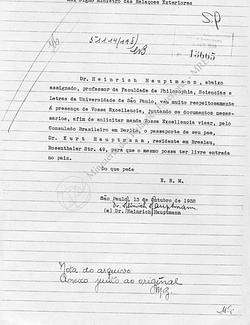 Digno Ministro das Relações Exteriores
S.P
511.14(193)
15665
Dr. Heinrich Hauptmann, abaixo
assignado, professor da Faculdade de Philosophia, Sciencias e
Letras da Universidade de São Paulo, vem muito respeitosamente
á presença de Vossa Excellencia, juntando os documentos neces-
sarios, afim de solicitar mande Vossa Excellencia visar, pelo
Consulado Brasileiro em Berlin, o passaporte de seu pae,
Dr. Kurt Hauptmann, residente em Breslau,
Rosenthaler Str. 49, para que o mesmo possa ter livre entrada
no paiz.
Do que pede
E. R. M.
São Paulo, 13 de Outubro de 1938
Dr. Heinrich Hauptmann
(a) Dr. Heinrich Hauptmann
Nota do arquivo
Anexo junto ao original